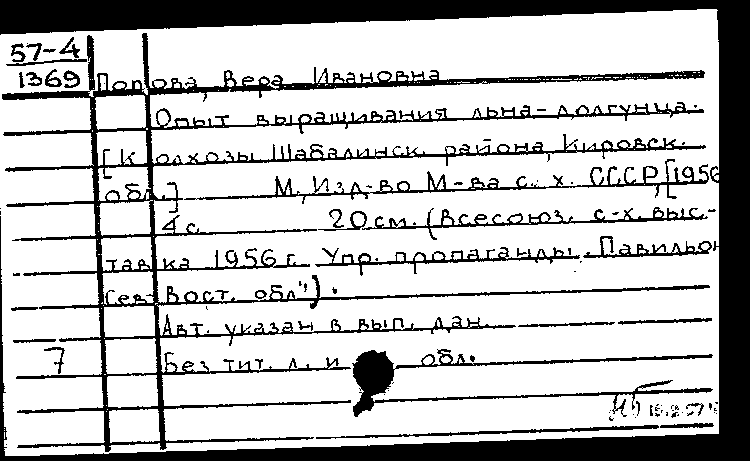 57-4
1369 Попова, Вера Ивановна
Опыт выращивания льна-долгунца.
[Колхозы Шабалинск. района, Кировск.
обл.] М., Изд-во М-ва с. х. СССР, [1956
4 с. 20 см. (Всесоюз. с-х. выс-
тавка 1956 г. Упр. пропаганды. Павильон
Сев-Вост. обл").
Авт. указан в вып. дан.
7 Без тит. л. и обл.